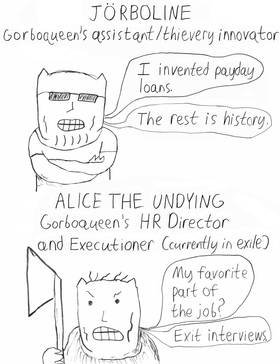 JÖRBOLINE
Gorboqueen's assistant/thievery innovator
I invented payday
loans.
The rest is history.
ALICE THE UNDYING
Gorboqueen's HR Director
and Executioner (currently in exile)
My favorite
part of
the job?
Exit interviews.